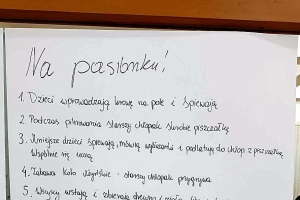 Na pasionku!
1. Dzieci wprowadzają krowę na pole i śpiewają
2. Podczas pilnowania starszy chłopak struże piszczałkę
3. Mniejsze dzieci śpiewają, mówią wyliczanki i podlatują do chłop z piszczałką
Wspólnie się uczą
4. Zabawa Koło młyńskie - starszy chłopak przygrywa
5. Wszyscy wstają i zbierają drewno i